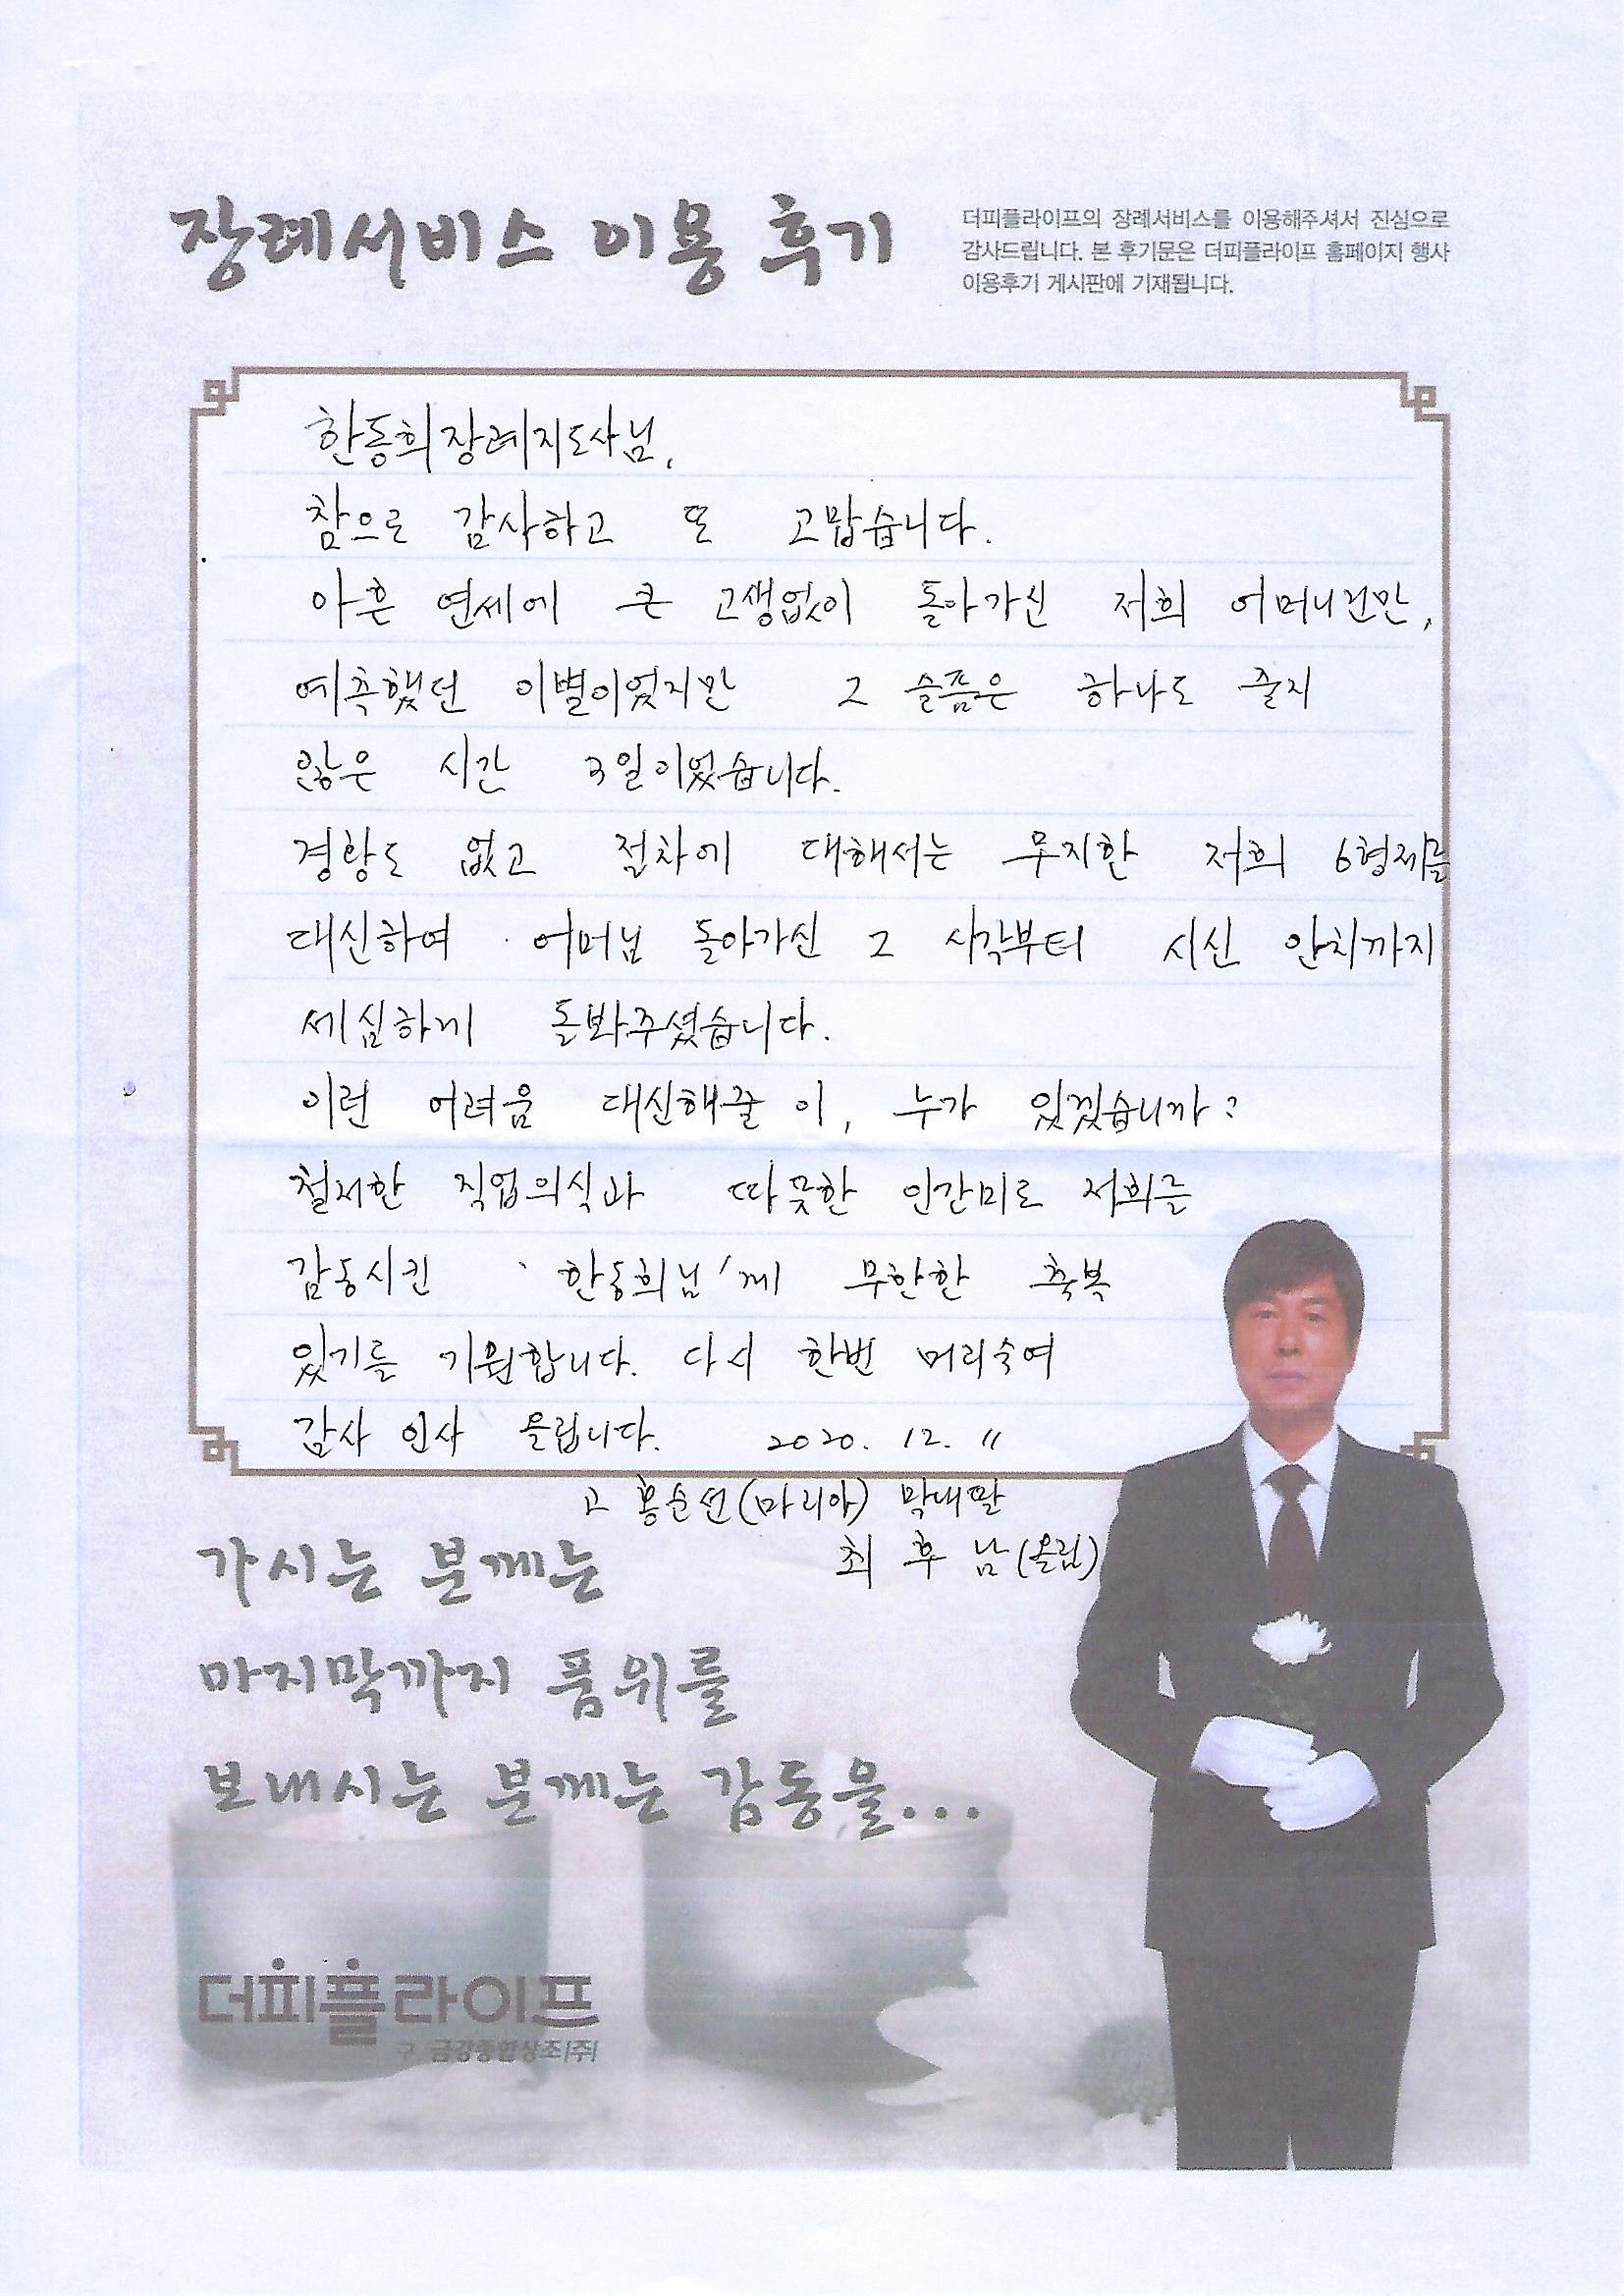 장례서비스 이용 후기
더피플라이프의 장례서비스를 이용해주셔서 진심으로
감사드립니다. 본 후기문은 더피플라이프 홈페이지 행사
이용후기 게시판에 기재됩니다.
한동희장례지도사님,
참으로 감사하고 또 고맙습니다.
아흔 연세에 큰 고생없이 돌아가신 저희 어머니건만,
예측했던 이별이었지만 그 슬픔은 하나도 줄지
않은 시간 3일이었습니다.
경황도 없고 절차에 대해서는 무지한 저희 6형제를
대신하여 어머님 돌아가신 그 시각부터 시신 안치까지
세심하게 돌봐주셨습니다.
이런 어려움 대신해줄 이, 누가 있겠습니까?
철저한 직업의식과 따뜻한 인간미로 저희를
감동시킨 '한동희님'께 무한한 축복
있기를 기원합니다. 다시 한번 머리숙여
감사 인사 올립니다. 2020. 12. 11
고 홍순선(마리아) 막내딸
최후남(올림)
가시는 분께는
마지막까지 품위를
보내시는 분께는 감동을...
더피플라이프
구 금강종합상조(주)